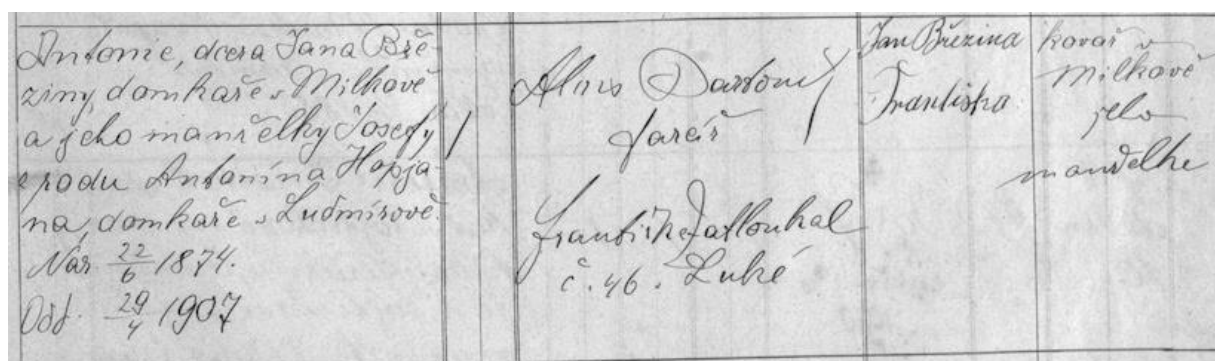 Antonie, dcera Jana Bře-
ziny, domkaře v Milkově
a jeho manželky Josefy
z rodu Antonína Hopja-
na, domkaře v Ludmírově.
Nar. 22/6 1874.
Odd. 29/4 1907
Alois
farář
Františka Zatloukal
č. 46. Luké
Jan Březina
Františka
kovař v
Milkově
jeho
manželka